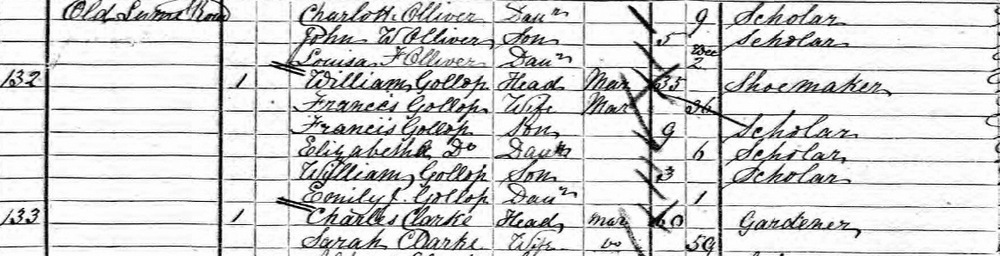 Old Road Charlotte Olliver Daur 9 Scholar
John W Olliver Son 5 Scholar
Louisa F Olliver Daur 2
132 1 William Gollop Head Mar 35 Shoemaker
Frances Gollop Wife Mar 36
Francis Gollop Son 9 Scholar
Elizabeth Do Daur 6 Scholar
William Gollop Son 3 Scholar
Emily J. Gollop Daur 1
133 1 Charles Clarke Head Mar 60 Gardener
Sarah Clarke Wife Do 59